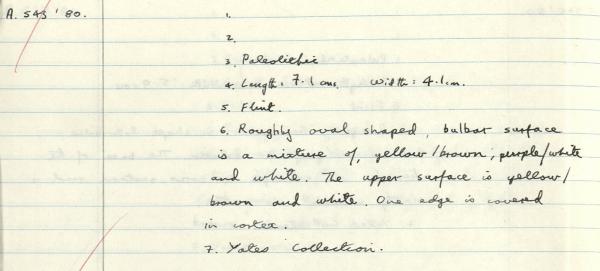 A. 543 '80.
1.
2.
3. Paleolithic
4. Length: 7.1 cms. Width: 4.1cm.
5. Flint.
6. Roughly oval shaped, bulbar surface
is a mixture of, yellow/brown; purple/white
and white. The upper surface is yellow/
brown and white. One edge is covered
in cortex.
7. Yates Collection.